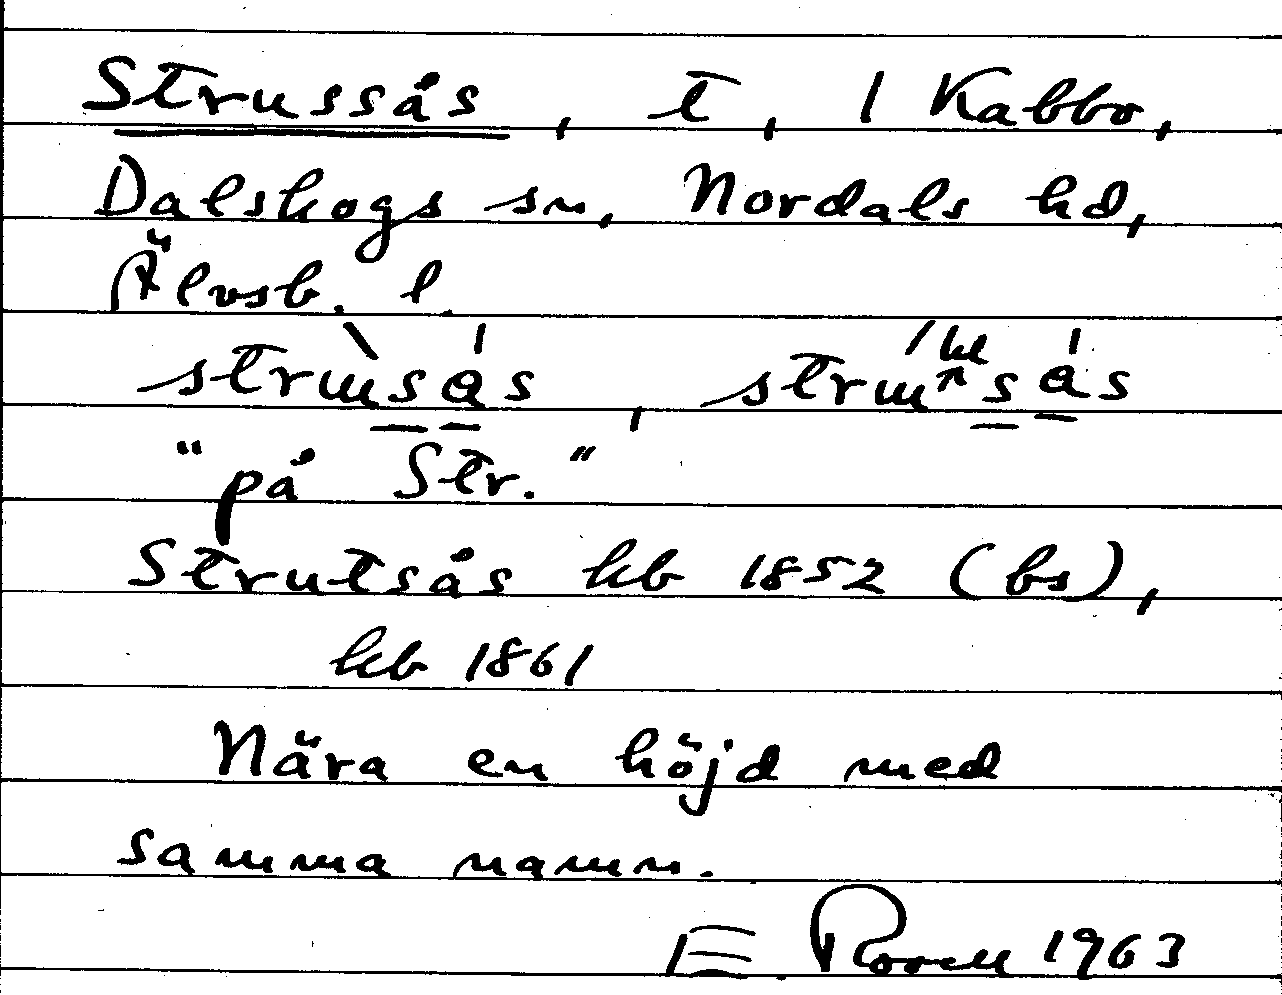 Strussås, t, 1 Kabbo,
Dalskogs sn, Nordals hd,
Älvsb. l.
"på Str."
Strutsås kb 1852 (bs),
kb 1861
Nära en höjd med
samma namn.
E. 1963